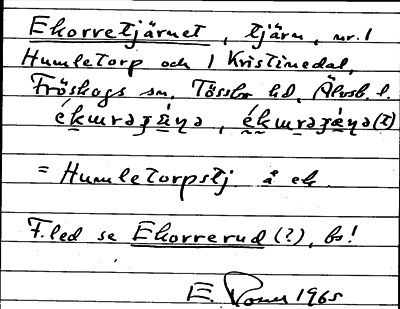 Ekorretjärnet, tjärn, nr. 1
Humletorp och 1 Kristinedal,
Fröskogs sn, Tössbo hd, Älvsb. l.
= Humletorpstj å ek.
F. led se Ekorrerud (?), bs!
E. 1965